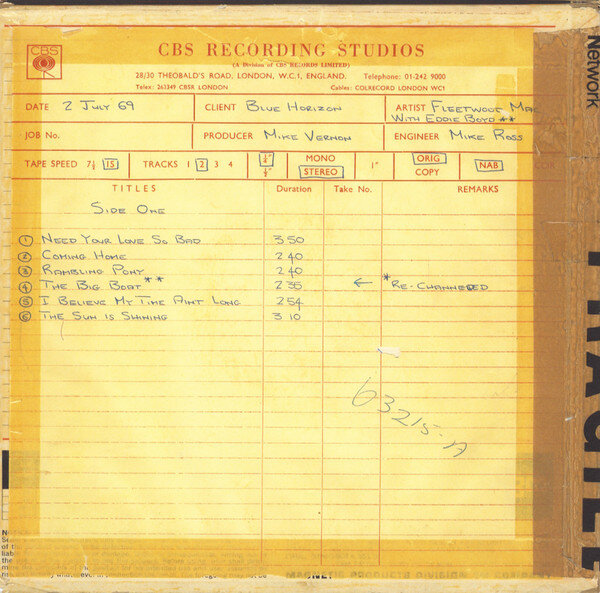 CBS
CBS RECORDING STUDIOS
(A Division of CBS RECORDS LIMITED)
28/30 THEOBALD'S ROAD, LONDON, W.C.1, ENGLAND. Telephone: 01-242 9000
Telex: 261349 CBSR LONDON Cables: COLRECORD LONDON WC1
DATE 2 JULY 69 CLIENT BLUE HORIZON ARTIST FLEETWOOD MAC
WITH EDDIE BOYD **
JOB No. PRODUCER MIKE VERNON ENGINEER MIKE ROSS
TAPE SPEED 7½ 15 TRACKS 1 2 3 4 ¼" ½" MONO STEREO 1" ORIG COPY NAB
TITLES Duration Take No. REMARKS
SIDE ONE
1 NEED YOUR LOVE SO BAD 3 50
2 COMING HOME 2 40
3 RAMBLING PONY 2 40
4 THE BIG BOAT ** 2 35 ← *RE-CHANNELED
5 I BELIEVE MY TIME AINT LONG 2 54
6 THE SUN IS SHINING 3 10
63215-A
Network